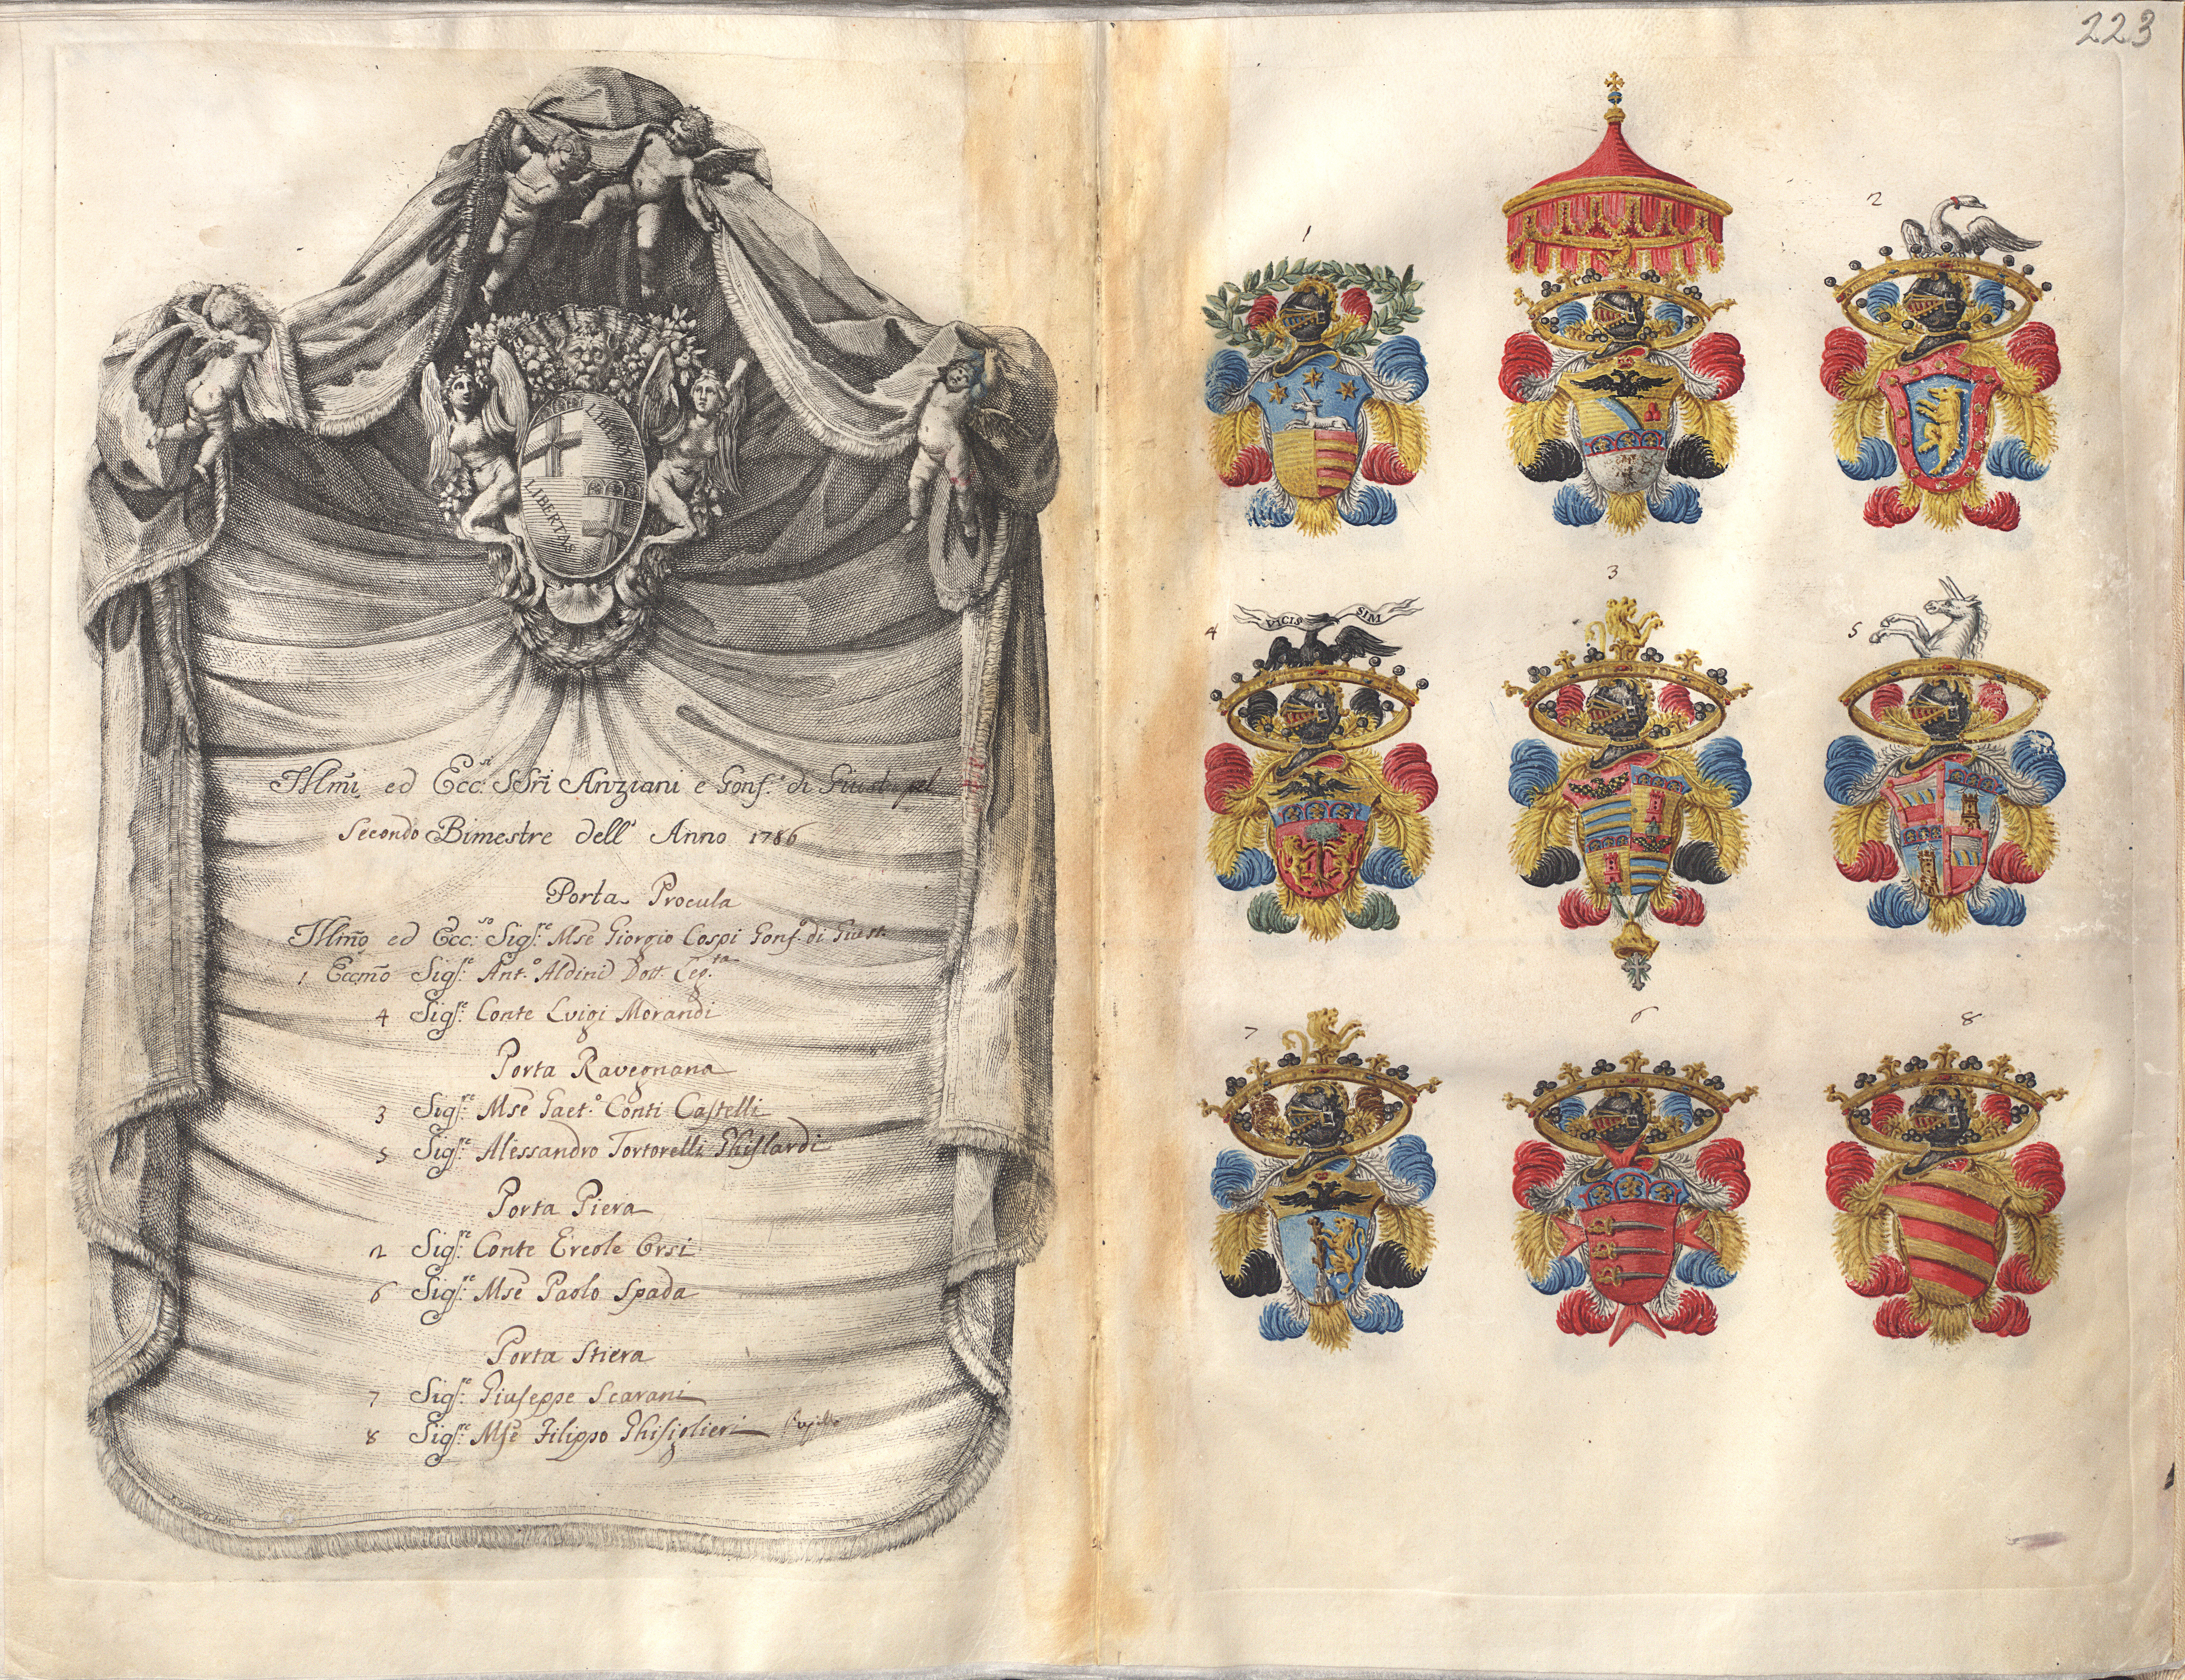 223
LIBERTAS
LIBERTAS
Illm̃i ed Ecc:ˢⁱ SSri Anziani e Gonf.ᵉ di Giust. pel
Secondo Bimestre dell' Anno 1786
Porta Procula
Illm̃o ed Ecc:ˢᵒ Sigʳᵉ Mse Giorgio Cospi Gonf.ᵉ di Giust.
1 Eccm̃o Sigʳᵉ Ant.º Aldini Dott. Leg.ᵗᵃ
4 Sigʳᵉ Conte Luigi Morandi
Porta Ravegnana
3 Sigʳᵉ Mse Gaet.º Conti Castelli
5 Sigʳᵉ Alessandro Tortorelli Ghislardi
Porta Piera
2 Sigʳᵉ Conte Ercole Orsi
6 Sigʳᵉ Mse Paolo Spada
Porta Stiera
7 Sigʳᵉ Giuseppe Scarani
8 Sigʳᵉ Mse Filippo Ghisiglieri
1
2
3
4
VICIS SIM
5
6
7
8